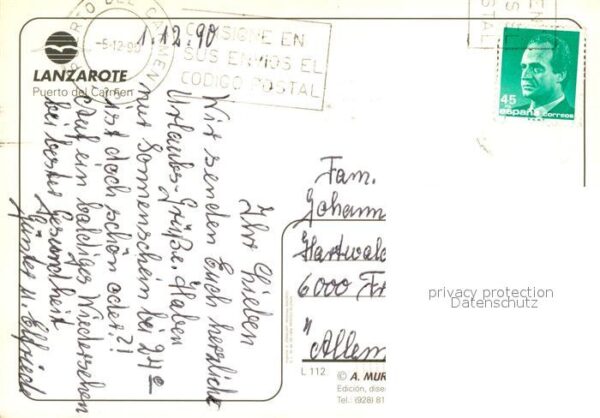 LANZAROTE
Puerto del Carmen
PUERTO DEL CARMEN
-5.12.90
CONSIGNE EN
SUS ENVIOS EL
CODIGO POSTAL
1.12.90
Ihr Lieben
Wir senden Euch herrliche
Urlaubs-Grüße. Haben
nur Sonnenschein bei 24°
Ist doch schön oder?!
Auf ein baldiges Wiedersehen
bei bester Gesundheit
Günter u. Elfriede
45
españa correos
Fam.
Johann
Hartwald
6000 Fr
Allem
privacy protection
Datenschutz
L 112
© A. MUR
Edición, dise
Tel. (928) 81